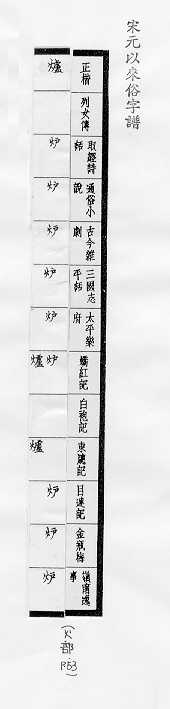 宋元以來俗字譜
正楷 爐
列女傳
取經詩話 炉
通俗小說 炉
古今雜劇 炉
三國志平話 炉
太平樂府 炉
嬌紅記 炉 爐
白袍記
東牕記 爐
目連記 炉
金瓶梅 炉
嶺南逸事 炉
(火部 P53)